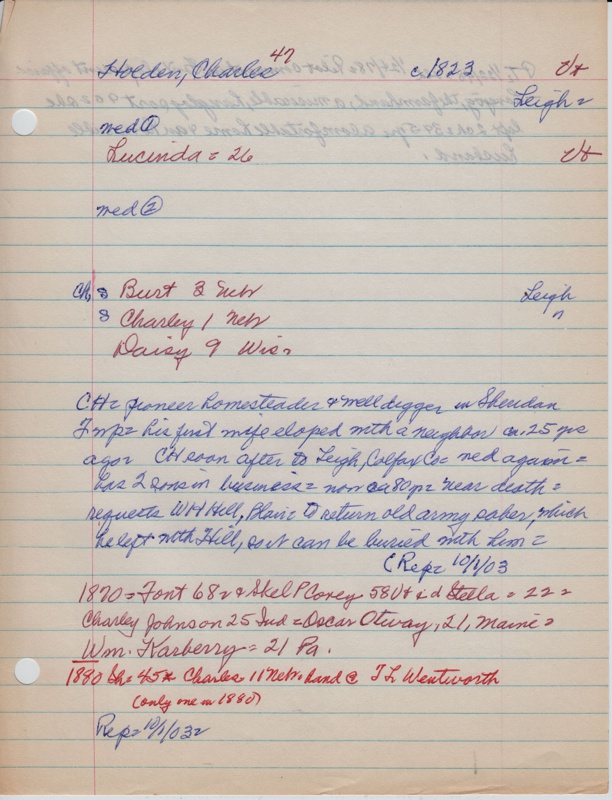 47
Holden, Charles c. 1823 Vt
Leigh =
med ①
Lucinda = 26 Vt
med ②
Ch, s Burt 3 Nebr Leigh
s Charley 1 Nebr n
Daisy 9 Wis =
CH = pioneer homesteader & well digger in Sheridan
Twp = his first wife eloped with a neighbor ca. 25 yrs
ago = CH soon after to Leigh, Colfax Co = med again =
has 2 sons in business = now ca 80 yr = near death =
requests WH Hill, Plain = to return old army saber, which
he left with Hill, so it can be buried with him =
C Rep = 10/1/03
1870 = Font 682 & Shel P Corey 58 Vt & d Stella = 22 =
Charley Johnson 25 Ind = Oscar Otway, 21, Maine =
Wm. Karberry = 21 Pa.
1880 Sh = 45 = Charles 11 Nebr. hand @ T L Wentworth
(only one in 1880)
Rep = 10/1/03 =